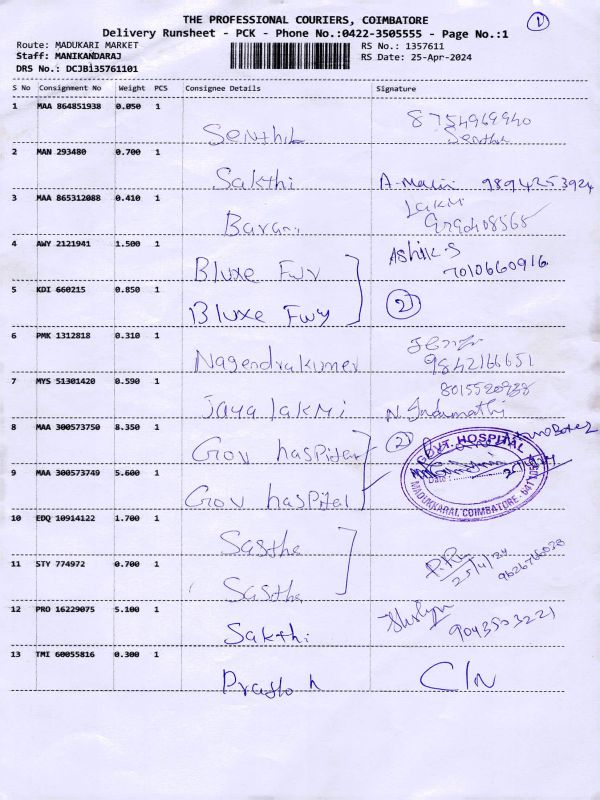 1
THE PROFESSIONAL COURIERS, COIMBATORE
Delivery Runsheet - PCK - Phone No.:0422-3505555 - Page No.:1
Route: MADUKARI MARKET
RS No.: 1357611
Staff: MANIKANDARAJ
RS Date: 25-Apr-2024
DRS No.: DCJB135761101
S No Consignment No Weight PCS Consignee Details Signature
1 MAA 864851938 0.050 1 Senthil 8754969940
Senthil
2 MAN 293480 0.700 1 Sakthi A. Malli 9894253924
3 MAA 865312088 0.410 1 Barani Lakmi
4 AWY 2121941 1.500 1 Bluxe Fwy Ashik.S
7010660916
5 KDI 660215 0.850 1 Bluxe Fwy 2
6 PMK 1312818 0.310 1 Nagendrakumer
9842166651
7 MYS 51301420 0.590 1 Jaya lakmi 8015520938
N. Indumathi
8 MAA 300573750 8.350 1 Gov haspital 2
GOVT. HOSPITAL
Date :
MADUKKARAI, COIMBATORE - 641 105
9 MAA 300573749 5.600 1 Gov haspital
10 EDQ 10914122 1.700 1 Sasthe
11 STY 774972 0.700 1 Sasthe 25/4/24 9626766028
12 PRO 16229075 5.100 1 Sakthi 9043503221
13 TMI 60055816 0.300 1 C/N